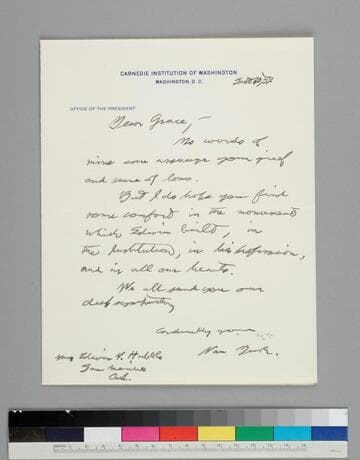 CARNEGIE INSTITUTION OF WASHINGTON
WASHINGTON, D.C.
OFFICE OF THE PRESIDENT
Dear Grace,—
No words of
mine can assuage your grief
and sense of loss.
But I do hope you find
some comfort in the monument
which Edwin built, in
the Institution, in his profession,
and in all our hearts.
We all send you our
deep sympathy
Cordially yours
Van Bush.
Mrs Edwin P. Hubble
San Marino
Cal.